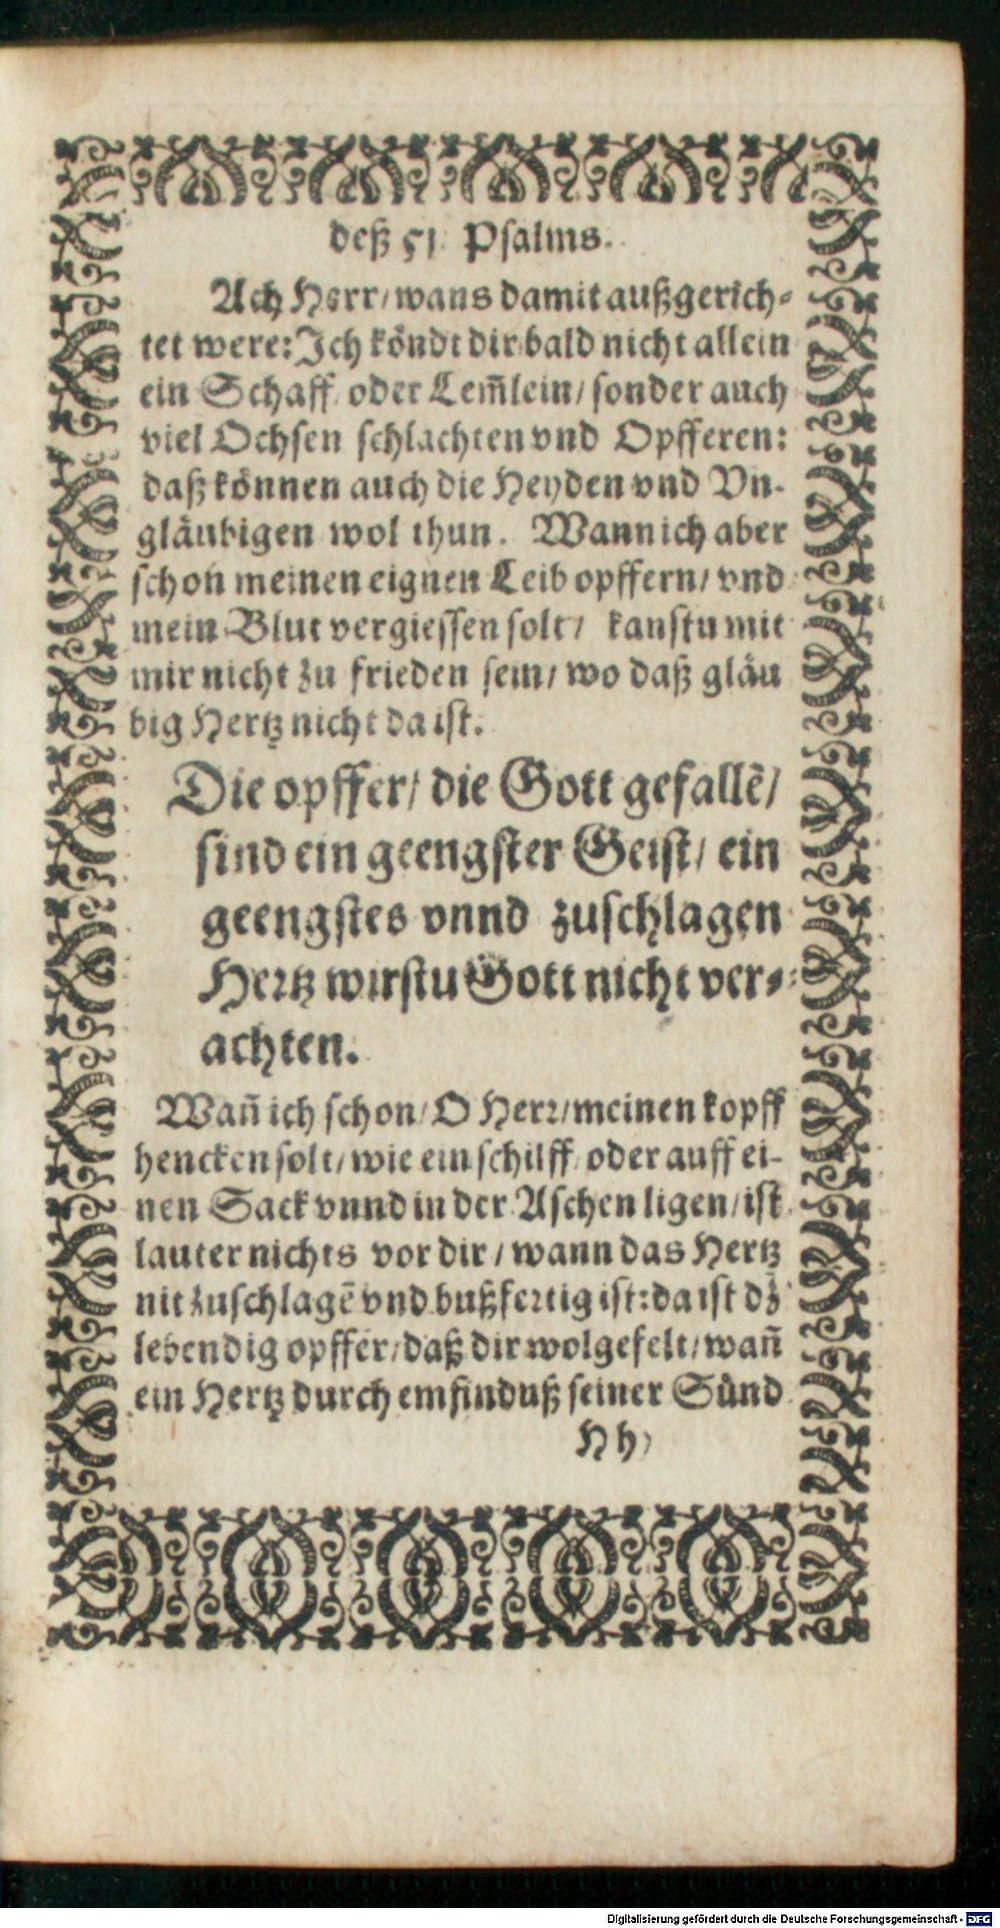 deß 51. Psalms.
Ach Herr/ wans damit außgerich-
tet were: Ich köndt dir bald nicht allein
ein Schaff oder Lem̃lein/ sonder auch
viel Ochsen schlachten vnd Opfferen:
daß können auch die Heyden vnd Vn-
gläubigen wol thun. Wann ich aber
schon meinen eignen Leib opffern/ vnd
mein Blut vergiessen solt/ kanstu mit
mir nicht zu frieden sein/ wo daß gläu
big Hertz nicht da ist.
Die opffer/ die Gott gefallẽ/
sind ein geengster Geist/ ein
geengstes vnnd zuschlagen
Hertz wirstu Gott nicht ver-
achten.
Wañ ich schon/ O Herr/ meinen kopff
hencken solt/ wie ein schilff/ oder auff ei-
nen Sack vnnd in der Aschen ligen/ ist
lauter nichts vor dir/ wann das Hertz
nit zuschlagẽ vnd bußfertig ist: da ist dz
lebendig opffer/ daß dir wolgefelt/ wañ
ein Hertz durch emfinduß seiner Sünd
Hh
Digitalisierung gefördert durch die Deutsche Forschungsgemeinschaft - DFG